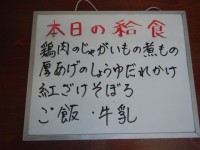 本日の給食
鶏肉のじゃがいもの煮もの
厚あげのしょうゆだれかけ
紅ざけそぼろ
ご飯・牛乳